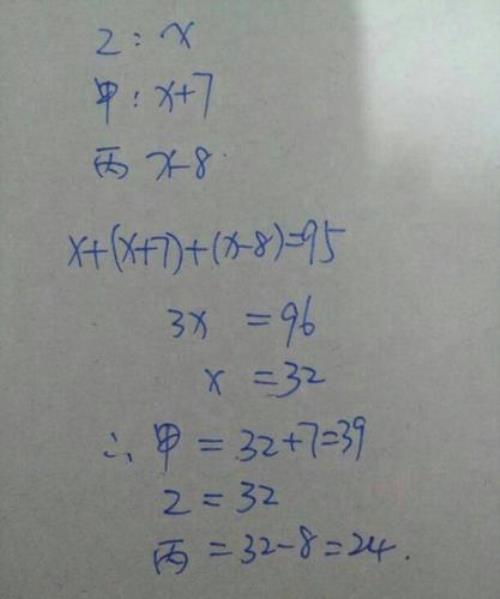 乙：x
甲：x+7
丙 x-8
x+(x+7)+(x-8)=95
3x =96
x =32
∴ 甲 = 32+7=39
乙 = 32
丙 =32-8=24.